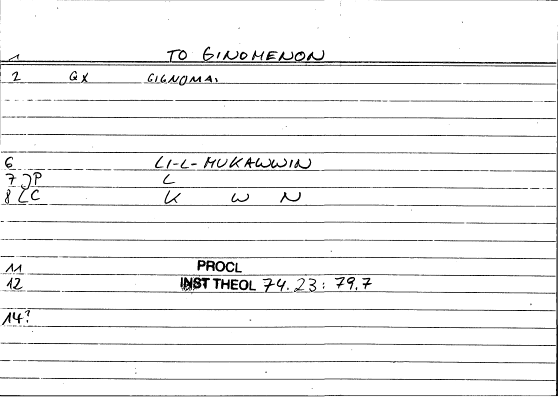 1 TO GINOMENON
2 GX GIGNOMAI
6 LI-L-MUKAWWIN
7 JP L
8 LC K W N
11 PROCL
12 INST THEOL 74.23: 79.7
14?